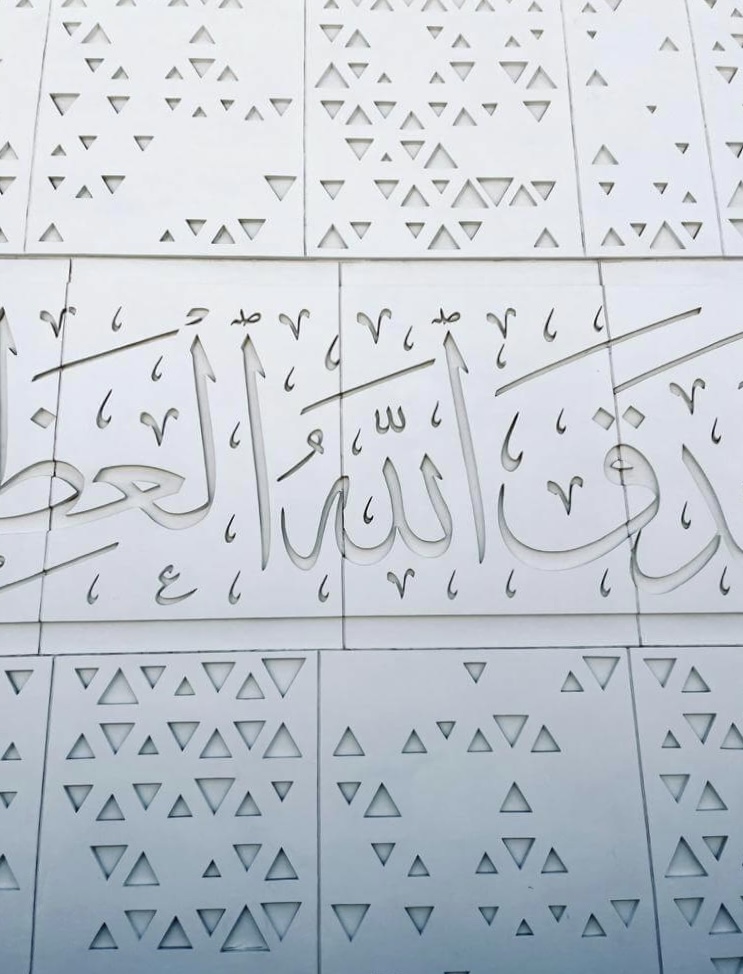 صَدَقَ اللّٰهُ العَظِ